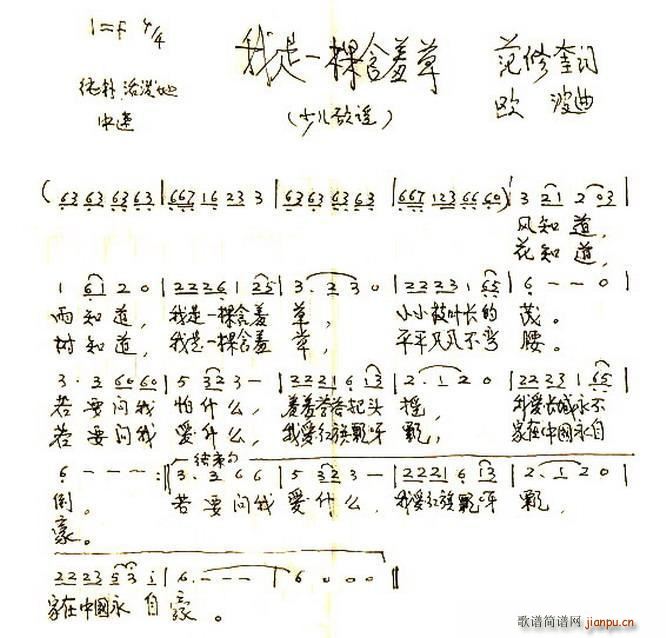 1=F 4/4
我是一棵含羞草
范修奎词
纯朴 活泼地
中速
(少儿歌谣)
欧 波曲
( 63 63 63 63 | 667 16 23 3 | 63 63 63 63 | 667 123 66 60 ) | 3 21 2 03 |
风知道,
花知道,
1 61 2 0 | 2226 1 25 | 3. 2 3 0 | 2223 1 65 | 6 - - 0 |
雨知道, 我是一棵含羞 草, 小小枝叶长的 茂。
树知道, 我是一棵含羞 草, 平平凡凡不弯 腰。
3. 2 60 60 | 5 32 3 - | 2221 6 13 | 2. 1 2 0 | 22 23 1 65 |
若要问我 怕什么, 羞羞答答把头 摇, 我爱长城永不
若要问我 爱什么, 我爱红旗飘呀 飘, 家在中国永自
结束句
6 - - - :‖ 3. 2 6 6 | 5 32 3 - | 2221 6 13 | 2. 1 2 0 |
倒。 若要问我 爱什么, 我爱红旗飘呀 飘,
豪。
2223 53 i | 6. - - - | 6 0 0 0 ‖
家在中国永 自 豪。
歌谱简谱网
jianpu.cn